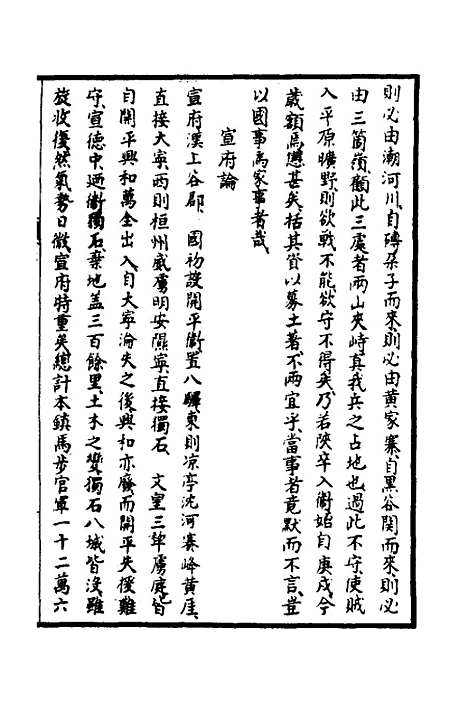 則必由潮河川自磚朵子而來則必由黃家寨自黑谷関而來則必
由三箇嶺顧此三處者兩山夾峙真我兵之占地也過此不守使賊
入平原曠野則欲戰不能欲守不得矣乃若陝卒入衛始自庚戌今
歲額馬憊甚矣括其貲以募土著不兩宜乎當事者竟默而不言豈
以國事爲家事者哉
宣府論
宣府漢上谷郡 國初設開平衛置八驛東則凉亭沈河賽峰黄厓
直接大寧西則桓州威虜明安隰寧直接獨石 文皇三犂虜庭皆
自開平興和萬全出入自大寧淪失之後興和亦廢而開平失援難
守宣德中廼衛獨石棄地盖三百餘里土木之變獨石八城皆没雖
旋收復然氣勢日微宣府特重矣總計本鎮馬步官軍一十二萬六